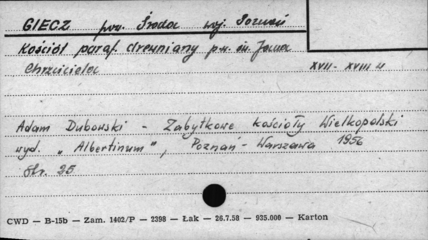 GIECZ pow. Środa woj. Poznań
Kościół paraf. drewniany p.w. św. Jana
Chrzciciela XVII - XVIII w
Adam Dubowski - Zabytkowe kościoły Wielkopolski
wyd. „Albertinum", Poznań - Warszawa 1956
Str. 25
CWD — B-15b — Zam. 1402/P — 2398 — Łak — 26.7.58 — 935.000 — Karton